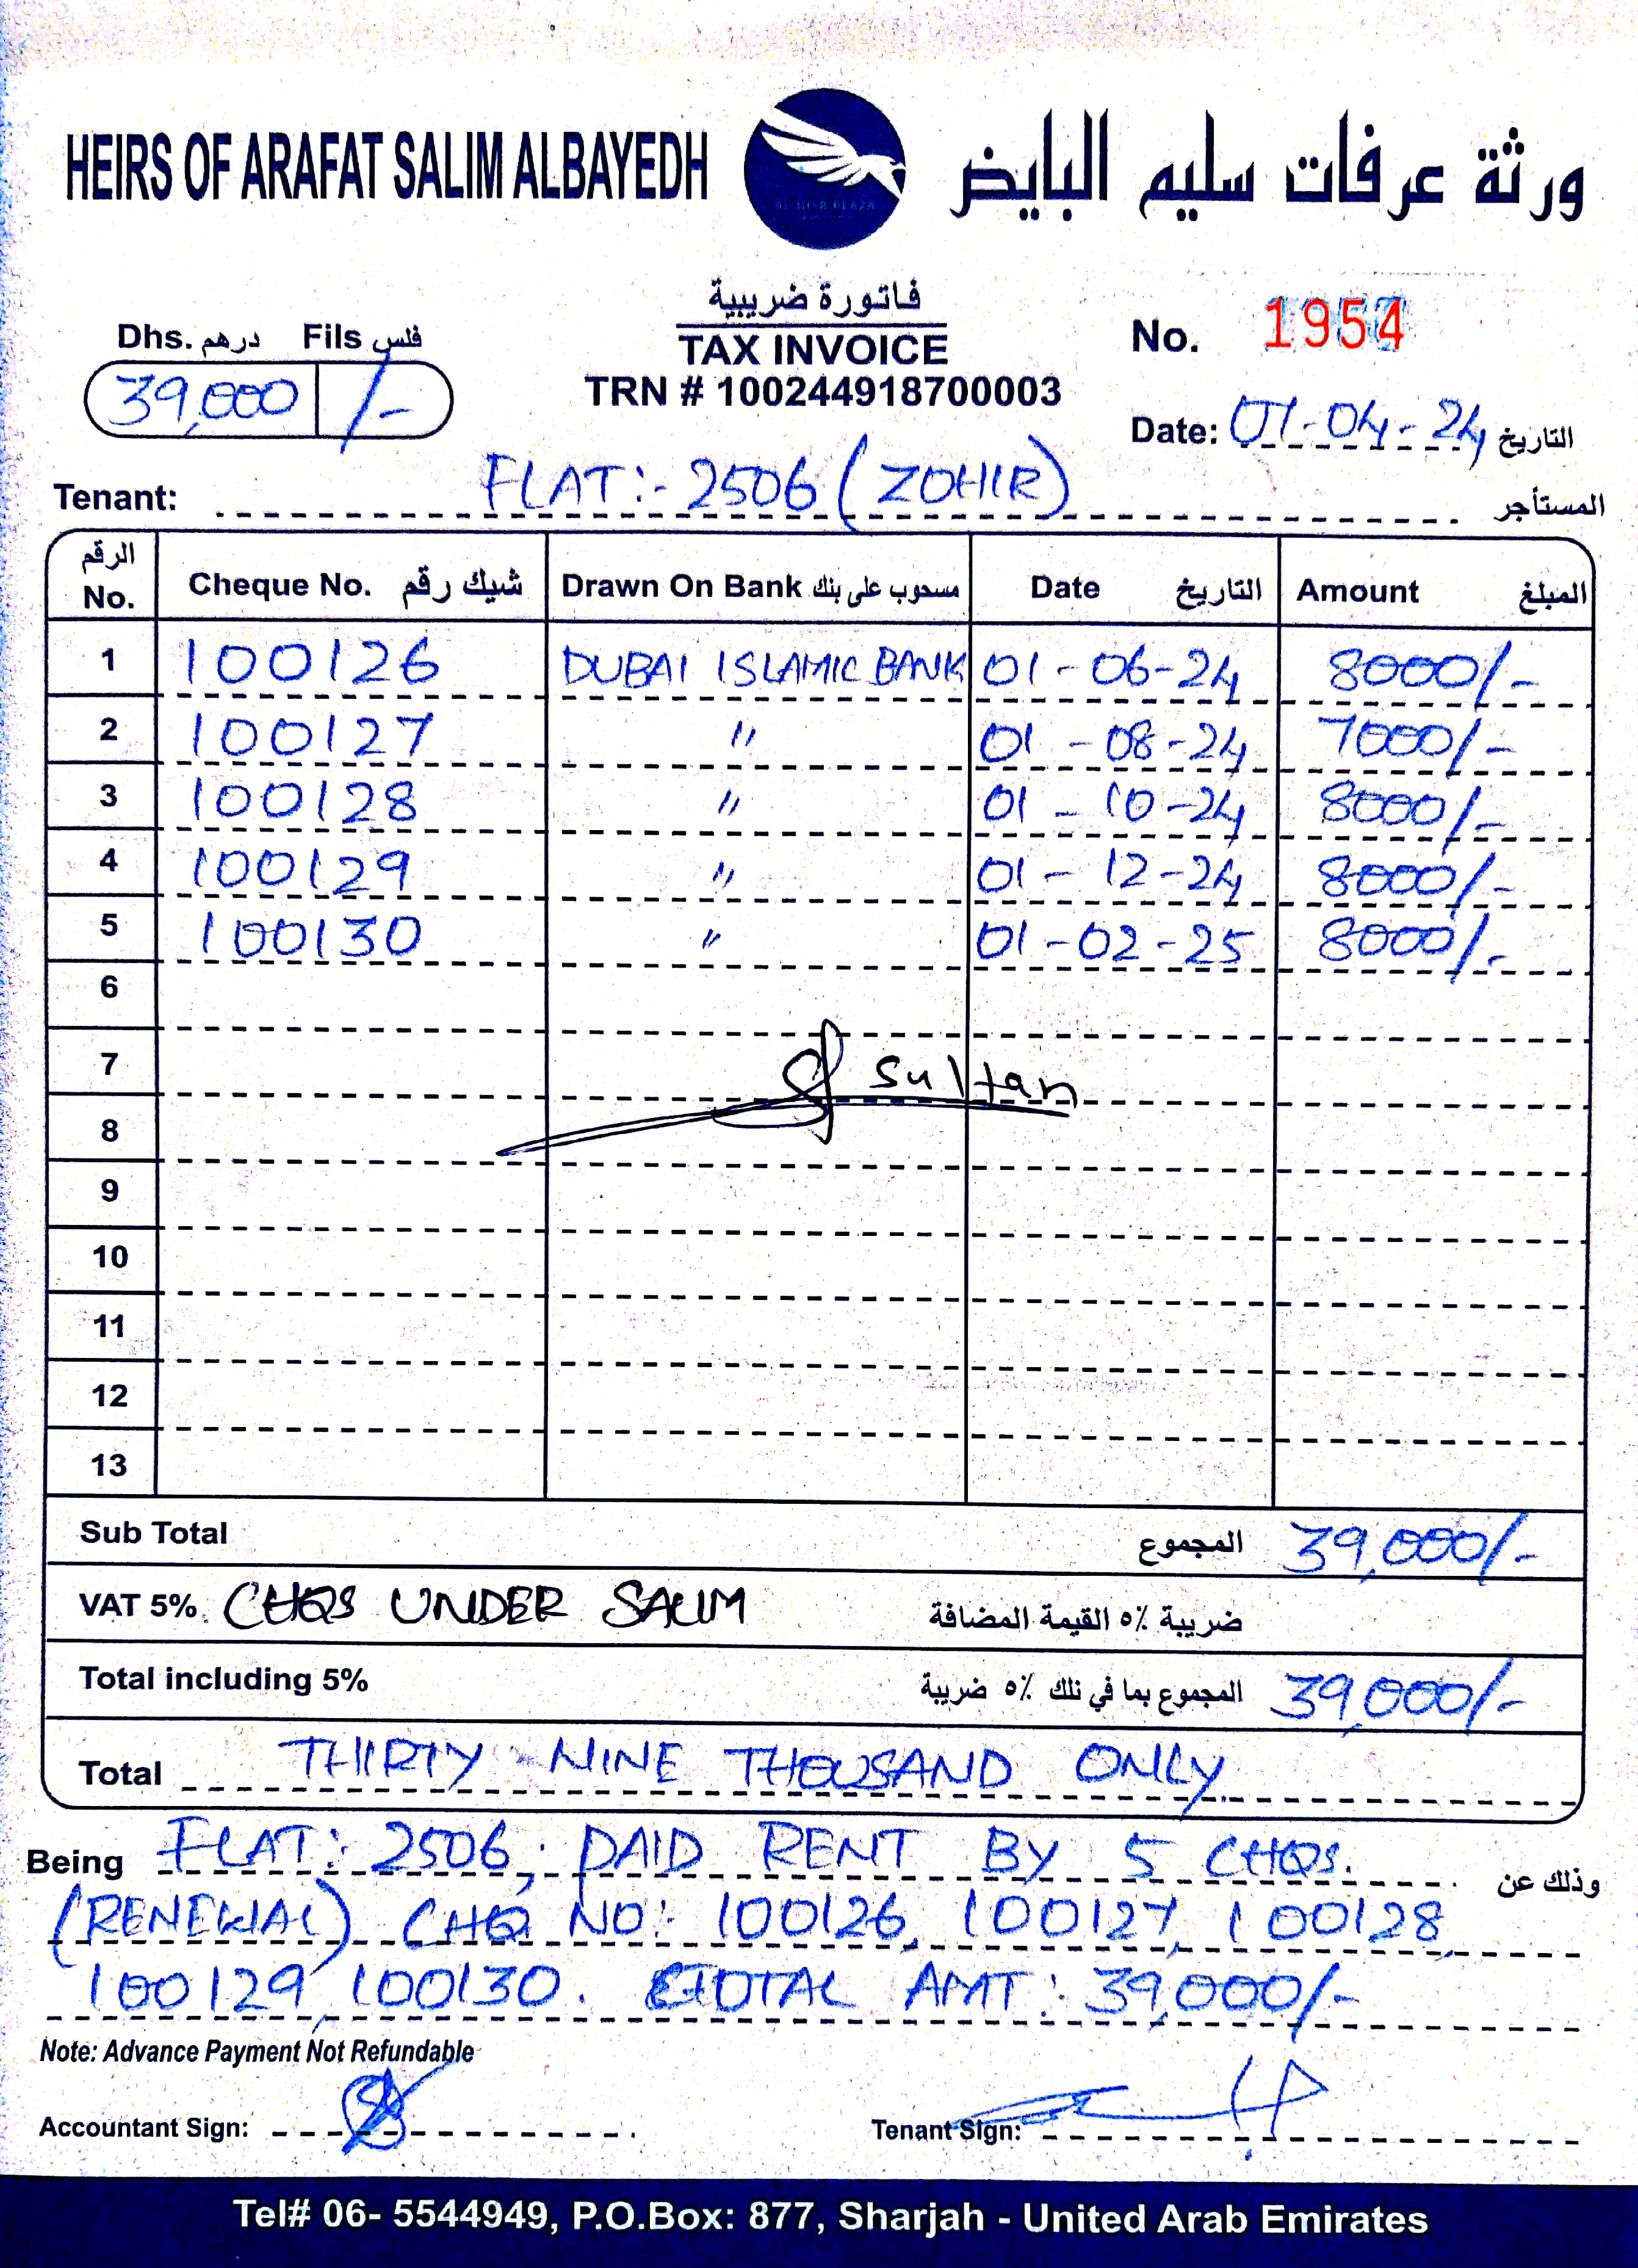 HEIRS OF ARAFAT SALIM ALBAYEDH ورثة عرفات سليم البايض
AL NISR PLAZA
فاتورة ضريبية
TAX INVOICE
TRN # 100244918700003
Dhs. درهم Fils فلس
39,000 /-
No. 1954
Date: 01-04-24 التاريخ
Tenant: FLAT:- 2506 (ZOHIR) المستأجر
الرقم No. Cheque No. شيك رقم Drawn On Bank مسحوب على بنك Date التاريخ Amount المبلغ
1 100126 DUBAI ISLAMIC BANK 01-06-24 8000/-
2 100127 " 01-08-24 7000/-
3 100128 " 01-10-24 8000/-
4 100129 " 01-12-24 8000/-
5 100130 " 01-02-25 8000/-
6
7 Sultan
8
9
10
11
12
13
Sub Total المجموع 39,000/-
VAT 5%. CHQS UNDER SALIM ضريبة ٥٪ القيمة المضافة
Total including 5% المجموع بما في تلك ٥٪ ضريبة 39,000/-
Total THIRTY NINE THOUSAND ONLY
Being FLAT: 2506, PAID RENT BY 5 CHQS. وذلك عن
(RENEWAL) CHQ NO: 100126, 100127, 100128,
100129, 100130. TOTAL AMT: 39,000/-
Note: Advance Payment Not Refundable
Accountant Sign: Tenant Sign:
Tel# 06- 5544949, P.O.Box: 877, Sharjah - United Arab Emirates